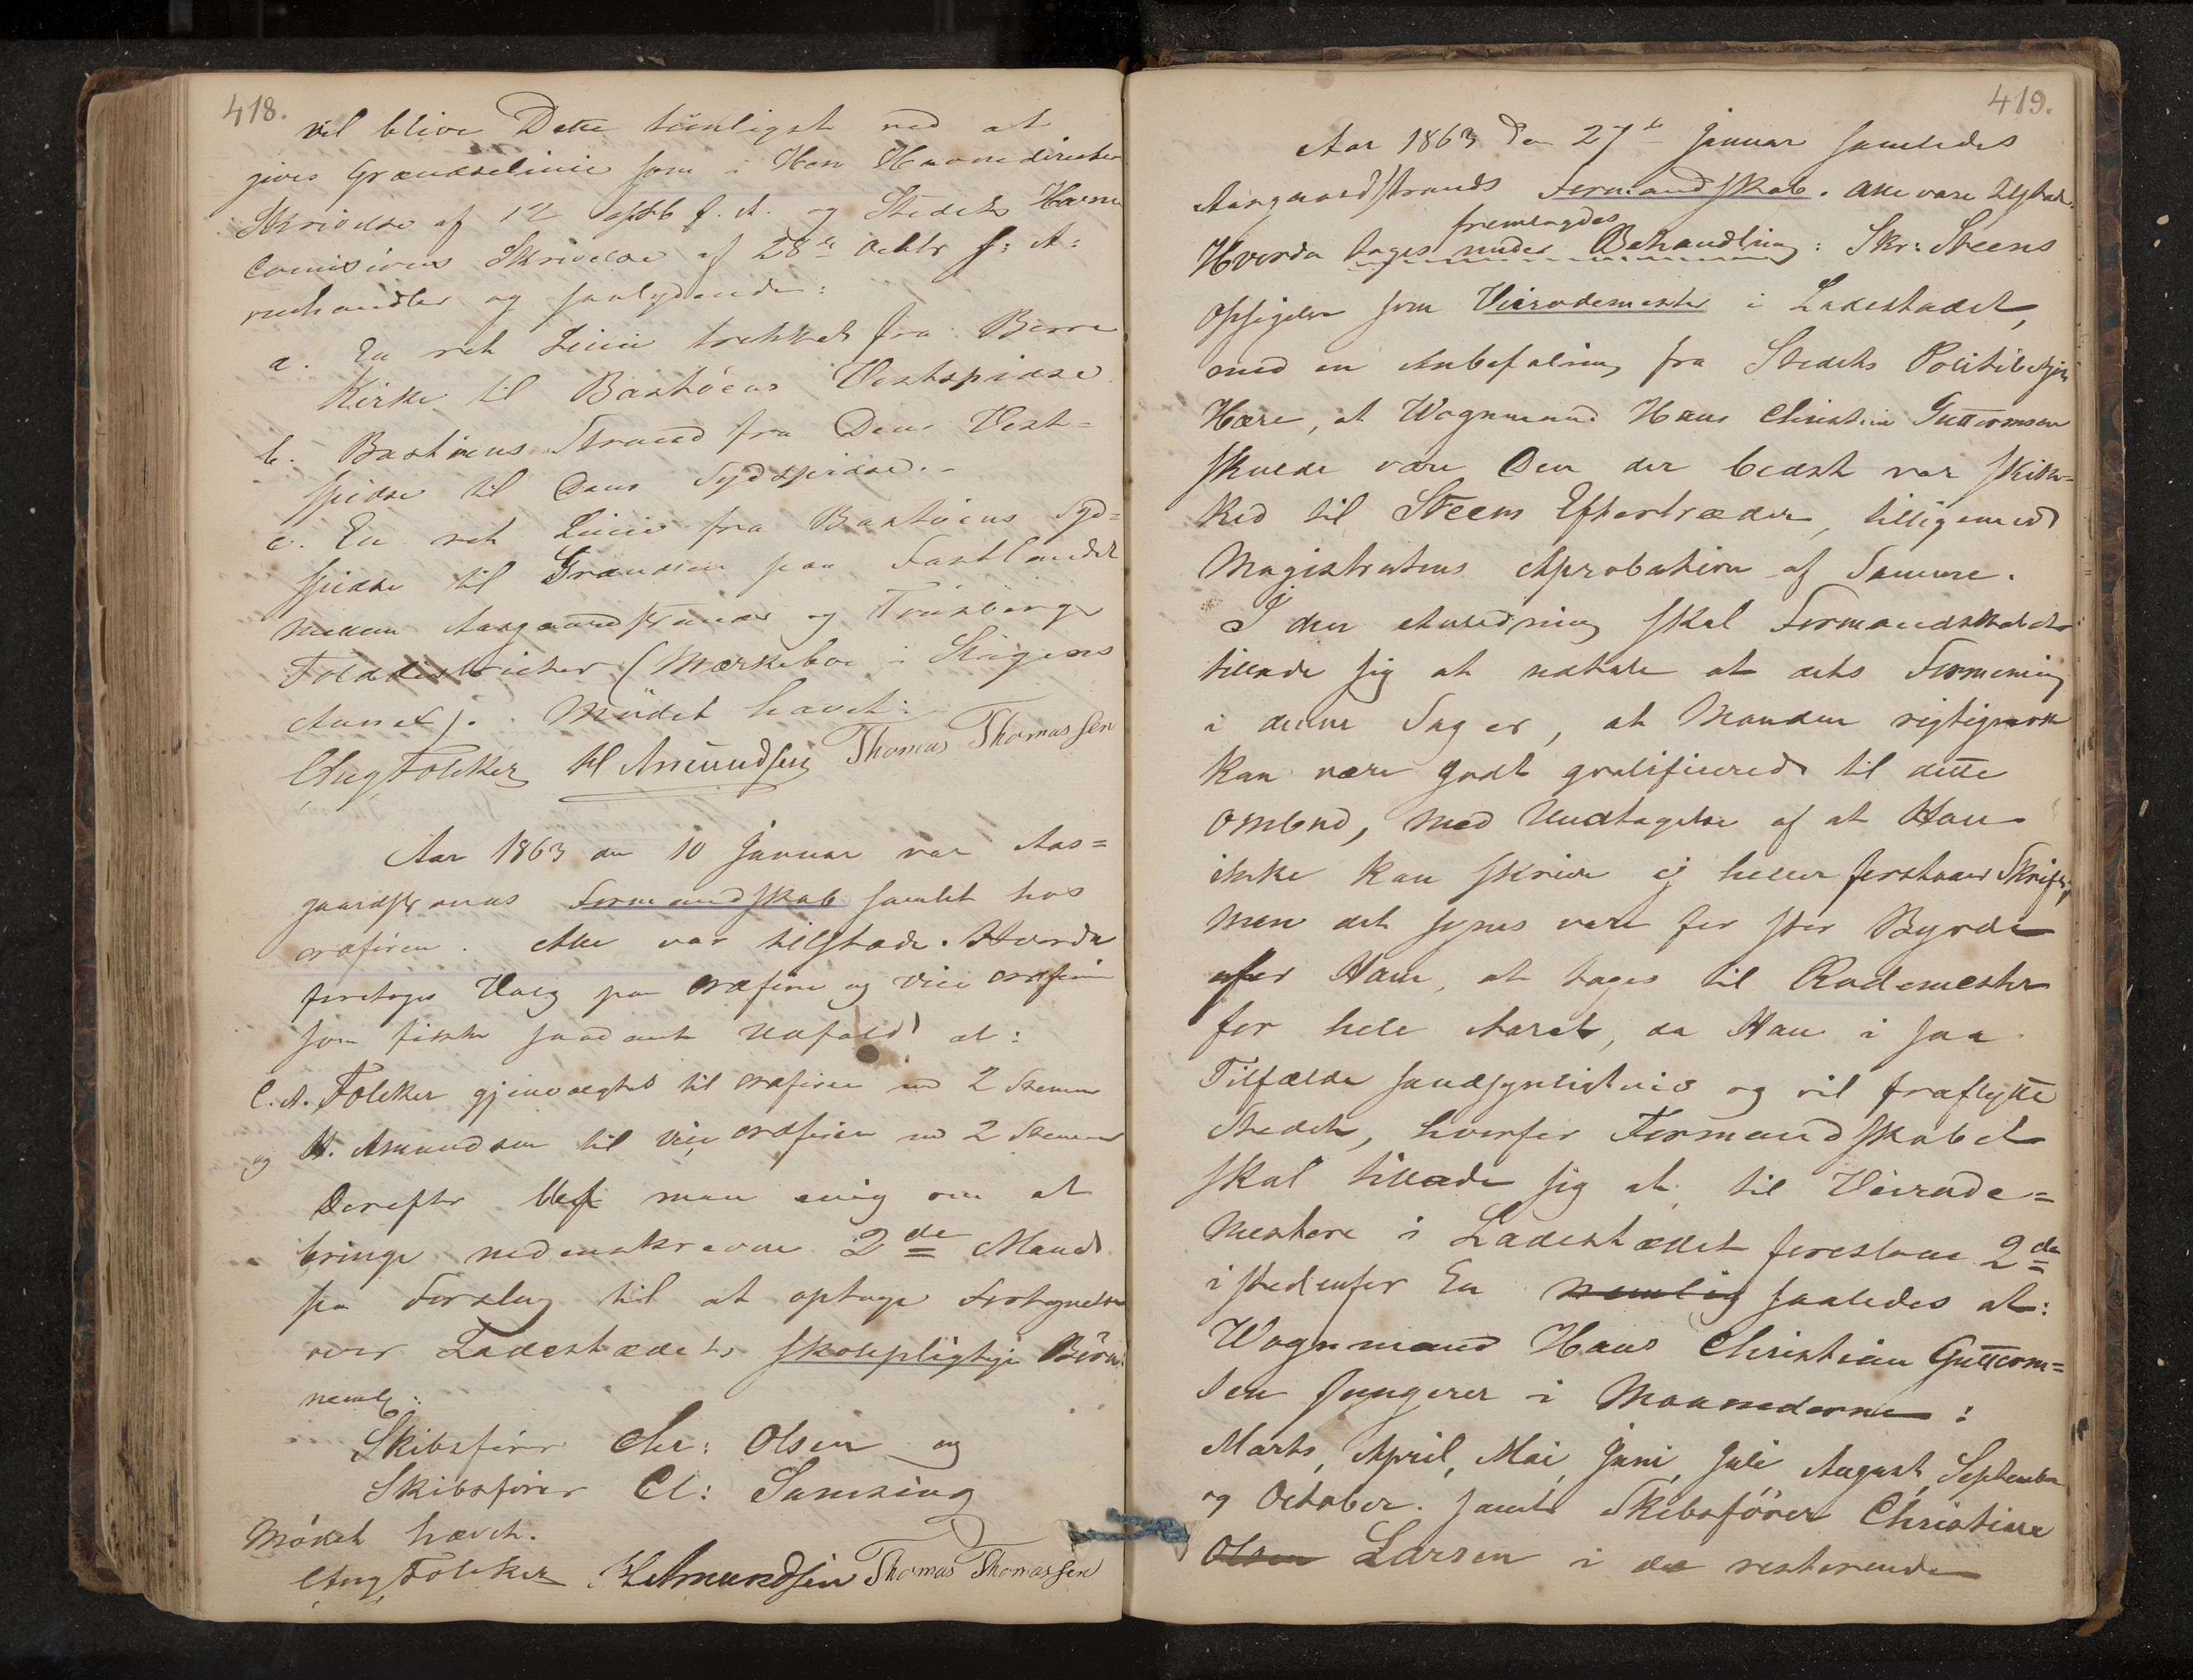 418.
vil blive Dette tienligst ved at
gives Grændselinie som i Hon Havnedirecteur
Skrivelse af 12 f. A. og Stedets Havne
Comisions Skrivelse af 28de Octbr f: A:
omhandler og saalydende:
a. En ret Linie trekket fra Borre
Kirke til Bastöens Vestspidse
b. Bastöens Strand fra Dens Vest=
spidse til Dens Sydspidse.-
c. En ret Linie fra Bastöens Syd=
spidse til Grændsen paa Fastlandet
mellem Aasgaardstrands og Tönsbergs
Tolddistricter (Mærkeboe i Slagens
Annex). Mödet hævet:
Chr Aug Foleker H Amundsen Thomas Thomassen
Aar 1863 den 10 Januar var Aas=
gaardstrands Formandskab samlet hos
Ordfören. Alle var tilstæde. Hvorda
foretoges Valg paa Ordförer og Vice Ordförer
som fikk saadant Udfald at:
C. A. Foleker gjenvalgtes til Ordförer med 2 Stemmer
og H. Amundsen til Vice Ordförer med 2 Stemmer
Derefter blef man enig om at
bringe nedenskrevne 2de Mænd
paa Forslag til at optage Fortegnelse
over Ladestædets skolepligtige Börn
nemlig:
Skibsförer Chr: Olsen og
Skibsförer Cl: Samsing
Mödet hævet.
Foleker H Amundsen Thomas Thomassen
419.
Aar 1863 den 27de Januar samledes
Aasgaardstrands Formandskab. Alle vare tilstæde.
fremlagdes
Hvorda toges under Behandling: Skr: Steens
Opsigelse som Veirodemester i Ladestædet,
med en Anbefaling fra Stedets Politibetjent
Hære, at Wognmand Hans Christian Guttormsen
skulde være Den der bedst var skik=
ked til Steens Eftertræder, tilligemed
Magistratens Aprobation af Samme.
I den Anledning skal Formandskabet
tillade sig at udtale at dets Formening
i denne Sag er, at Manden rigtignok
kan være godt qvalificered til dette
Ombud, med Undtagelse af at Han
ikke kan skrive ej heller forstaaer Skrift;
men det synes være for stor Byrde
for Ham, at tages til Rodemester
for hele Aaret, da Han i saa
Tilfælde sandsynligtvis og vil fraflytte
Stedet, hvorfor Formandskabet
skal tillade sig at til Veirode=
mestere i Ladestædet foreslaae 2de
istedenfor En nemlig saaledes at:
Wognmand Hans Christian Guttorm=
sen fungerer i Maanederne:
Marts, April, Mai, Juni, Juli August, September
og October. samt Skibsförer Christian
Olsen Larsen i de resterende